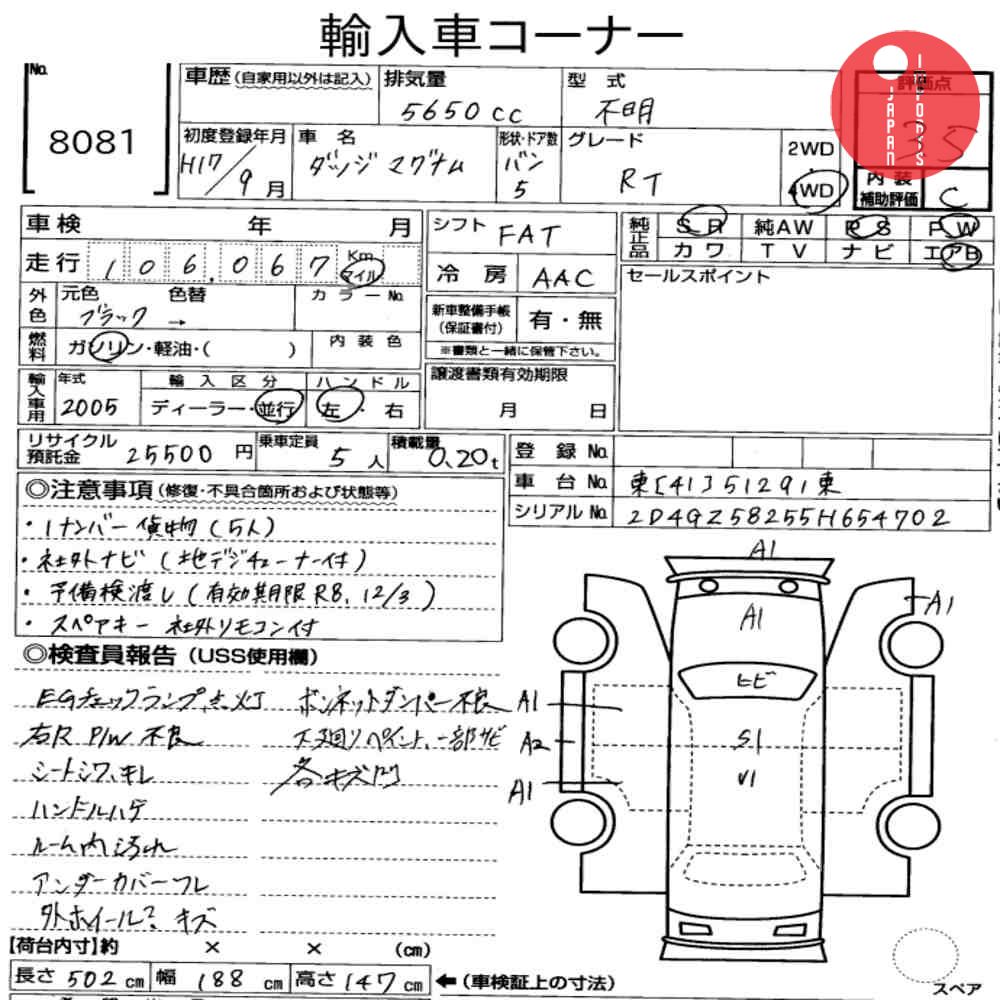 輸入車コーナー
JAPAN IMPORTS
No. 8081
車歴 (自家用以外は記入) 排気量 型式 評価点
5650cc 不明 35
初度登録年月 車名 形状・ドア数 グレード 2WD 内装補助評価
H17/9月 ダッジ マグナム バン 5 RT 4WD C
車検 年 月 シフト FAT 純正品 SR 純AW PS PW
カワ TV ナビ エアB
走行 106,067 Km マイル 冷房 AAC セールスポイント
外色 元色 色替 カラーNo. 新車整備手帳(保証書付) 有・無
ブラック → ※書類と一緒に保管下さい。
燃料 ガソリン・軽油・( ) 内装色
輸入車用 年式 輸入区分 ハンドル 譲渡書類有効期限
2005 ディーラー・並行 左・右 月 日
リサイクル預託金 25500円 乗車定員 5人 積載量 0.20t 登録No.
車台No. 東[41]351291東
シリアルNo. 2D4GZ58255H654702
◎注意事項 (修復・不具合箇所および状態等)
・1ナンバー貨物(5人)
・社外ナビ(地デジチューナー付)
・予備検渡し(有効期限R8.12/3)
・スペアキー 社外リモコン付
◎検査員報告 (USS使用欄)
EGチェックランプ点灯 ボンネットダンパー不良
右R P/W 不良 下廻りペイント、一部サビ
シートシワ、キレ 各キズ凹
ハンドルハゲ
ルーム内汚れ
アンダーカバーフレ
外ホイール? キズ
A1
A1
A1
ヒビ
A1
A2
S1
A1
V1
【荷台内寸】約 × × (cm)
長さ 502 cm 幅 188 cm 高さ 147 cm ←(車検証上の寸法)
スペア